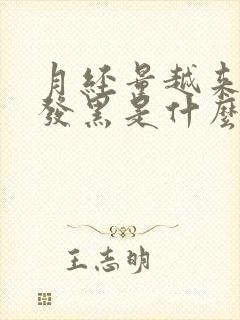 月經量越来
發黑是什麼
王志明